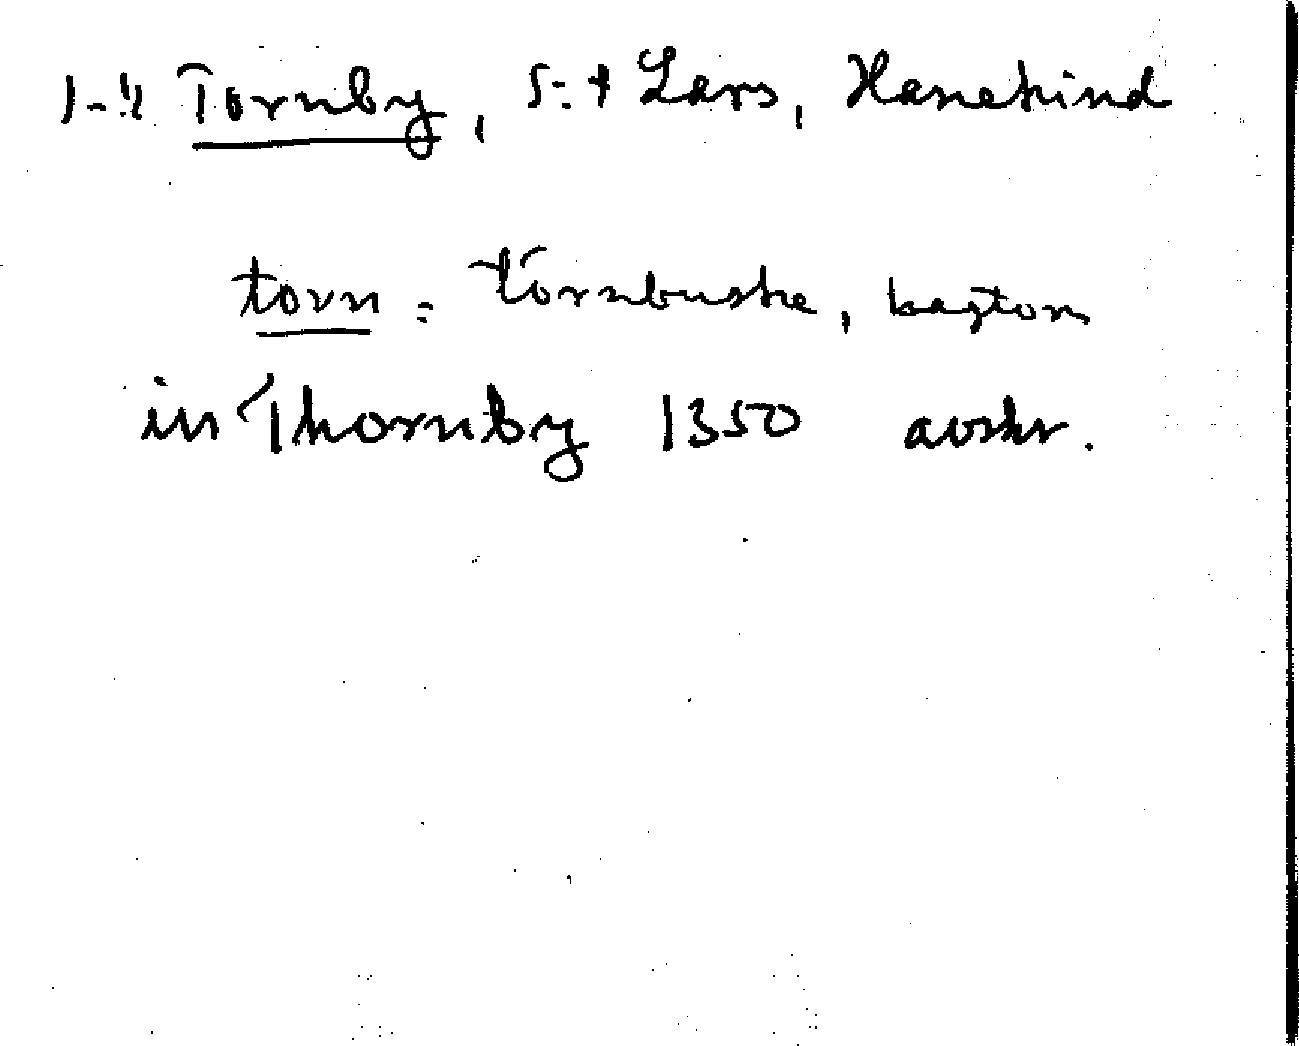 Tornby, S:t Lars, Hanekind
torn = törnbuske, hagtorn
in Thornby 1350 avskr.